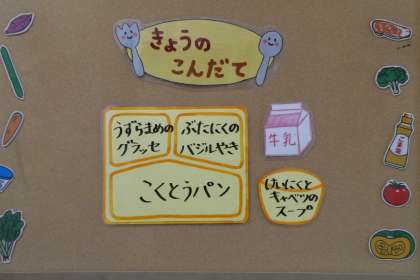 きょうの
こんだて
うずらまめの
グラッセ
ぶたにくの
バジルやき
こくとうパン
牛乳
けいにくと
キャベツの
スープ